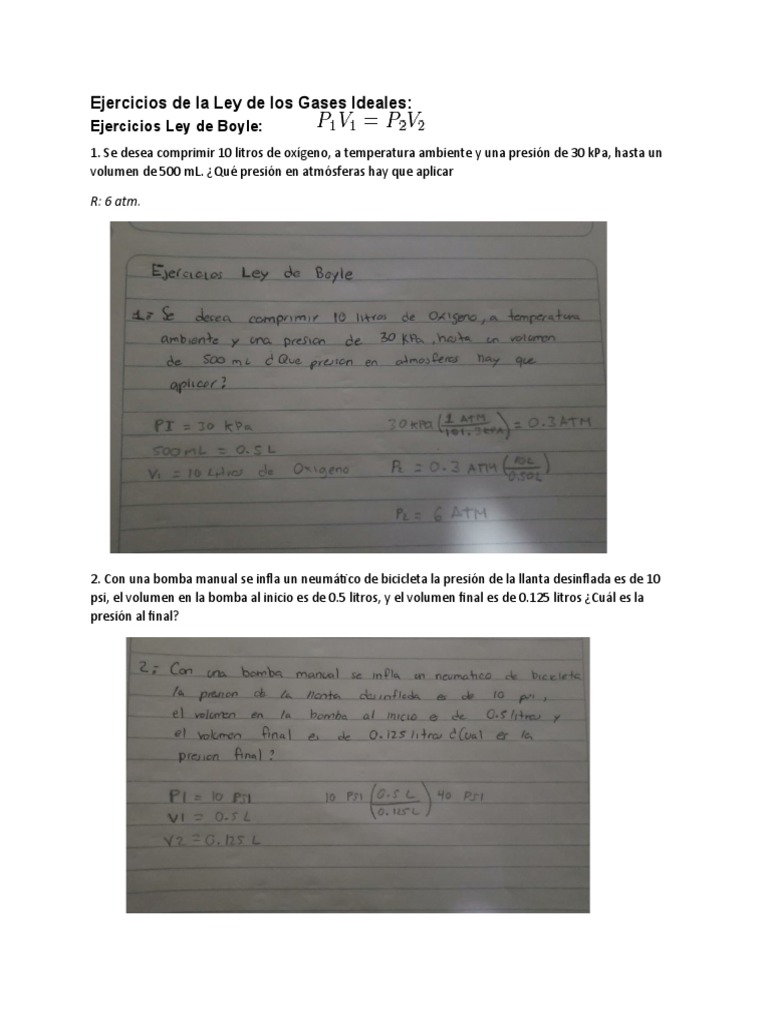 Ejercicios de la Ley de los Gases Ideales:
Ejercicios Ley de Boyle: P₁V₁ = P₂V₂
1. Se desea comprimir 10 litros de oxígeno, a temperatura ambiente y una presión de 30 kPa, hasta un
volumen de 500 mL. ¿Qué presión en atmósferas hay que aplicar
R: 6 atm.
Ejercicios Ley de Boyle
1= Se desea comprimir 10 litros de oxigeno, a temperatura
ambiente y una presion de 30 KPa, hasta un volumen
de 500 mL ¿Que presion en atmosferas hay que
aplicar?
PI = 30 kPa 30 kPa (1 ATM / 101.3 kPA) = 0.3 ATM
500 mL = 0.5 L
V₁ = 10 Litros de Oxigeno P₂ = 0.3 ATM (10L / 0.50L)
P₂ = 6 ATM
2. Con una bomba manual se infla un neumático de bicicleta la presión de la llanta desinflada es de 10
psi, el volumen en la bomba al inicio es de 0.5 litros, y el volumen final es de 0.125 litros ¿Cuál es la
presión al final?
2= Con una bomba manual se infla un neumatico de bicicleta
la presion de la llanta desinflada es de 10 psi,
el volumen en la bomba al inicio es de 0.5 litros y
el volumen final es de 0.125 litros ¿Cual es la
presion final?
P1 = 10 PSI 10 PSI (0.5 L / 0.125 L) 40 PSI
V1 = 0.5 L
V2 = 0.125 L